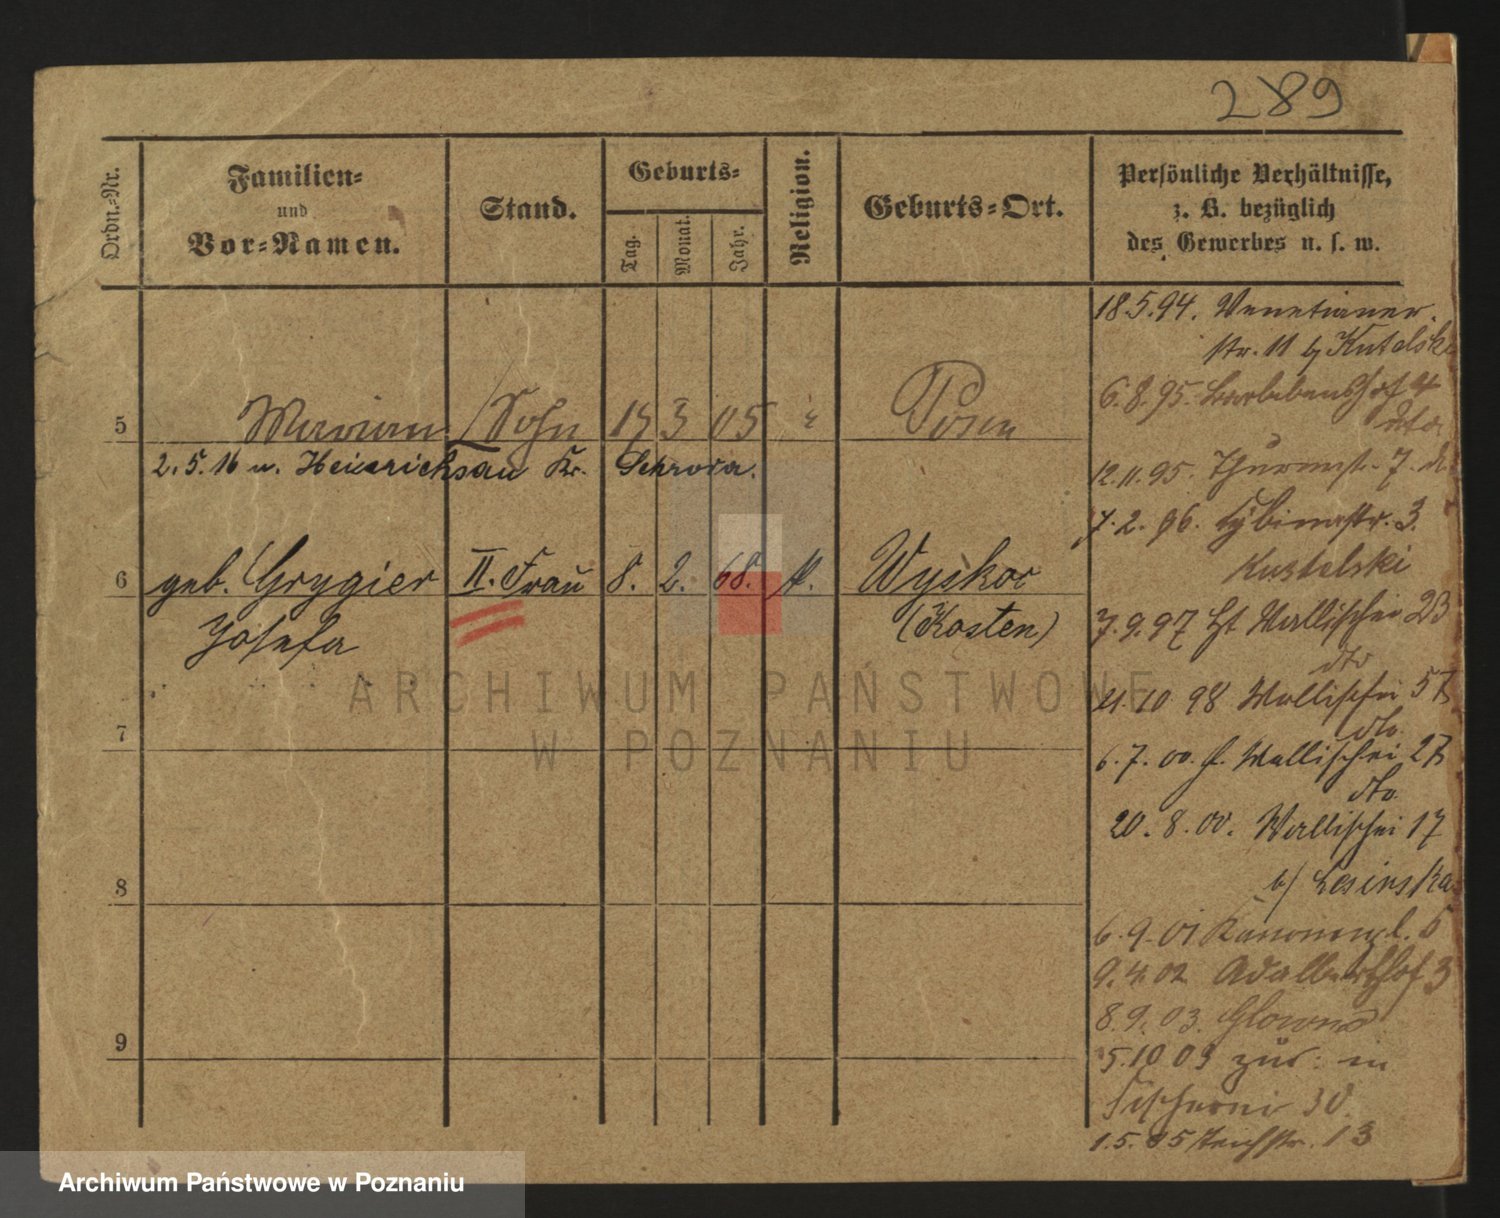 289
Ordn.-Nr.
Familien-
und
Vor-Namen.
Stand.
Geburts-
Tag.
Monat.
Jahr.
Religion.
Geburts-Ort.
Persönliche Verhältnisse,
z. B. bezüglich
des Gewerbes u. s. w.
5 Marian Sohn 3 05 " Posen
2. 5. 16 n. Heinrichsau Kr. Schroda.
6 geb. Grygier II. Frau 8. 2. 68. k. Wyskoc
Josefa (Kosten)
7
8
9
18.5.94. Venetianer-
str. 11 b/ Kutelski
6.8.95. 4
dto
12.11.95. Thurmstr. 7.
7.2.96. Cybinastr. 3.
Kustelski
7.9.97 Wallischei 23
dto
11.10 98 Wallischei
dto.
6.7.00. Wallischei
dto.
20.8.00. Wallischei 17
b/ Lesinska
6.9.01 Kanonenpl. 5
9.4.02 Adalberthof 3
8.9.03. Glowno
5.10 03 zür: in
Fischerei 30.
1.5.05 Teichstr. 13
ARCHIWUM PAŃSTWOWE
W POZNANIU
Archiwum Państwowe w Poznaniu